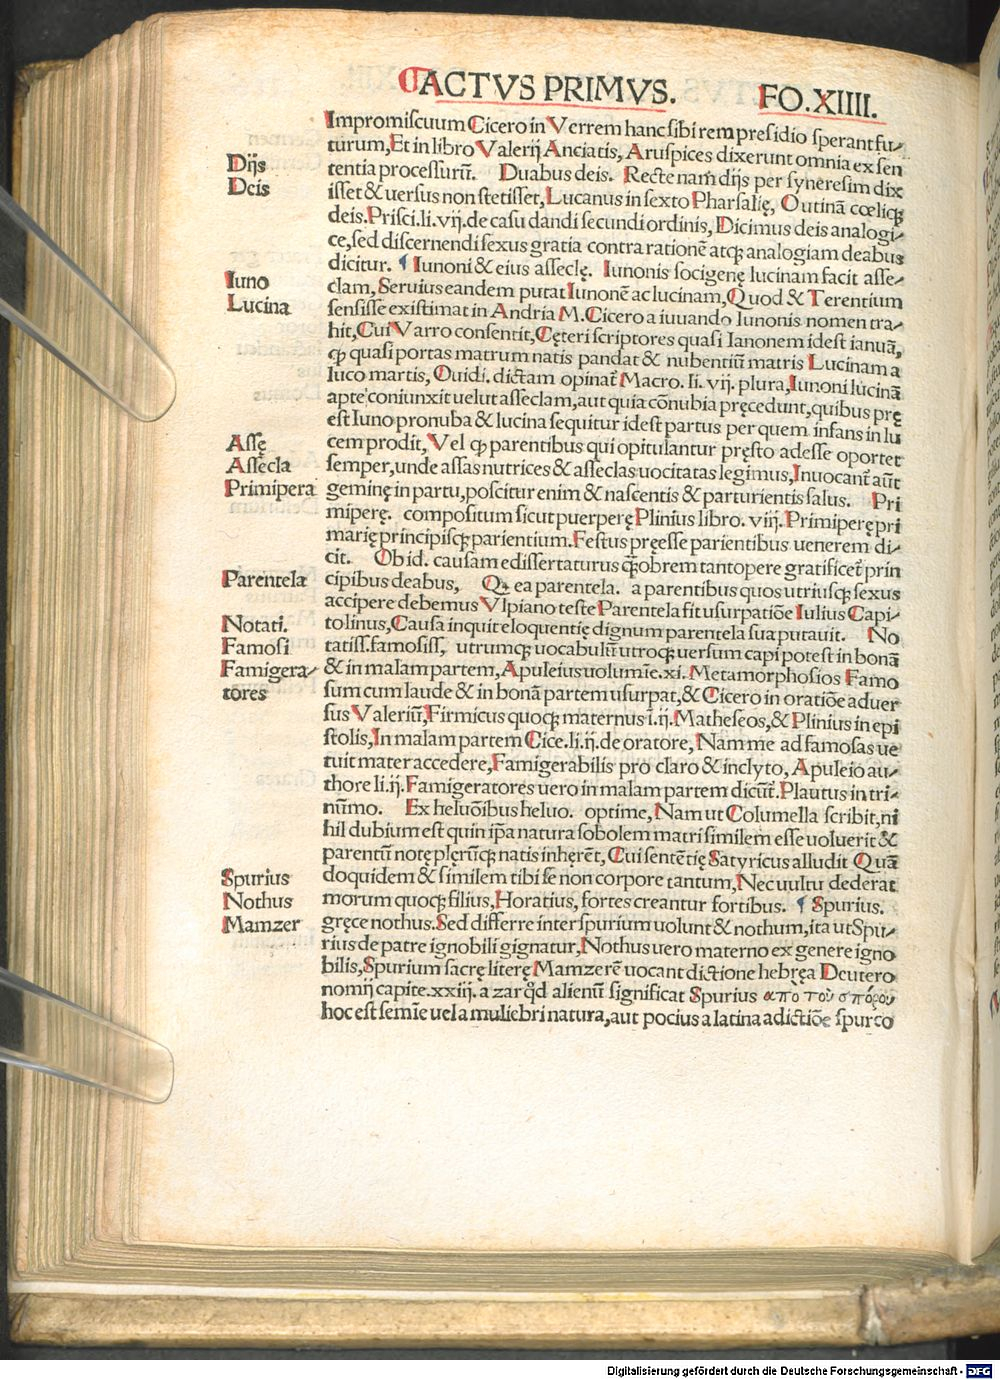 ACTVS PRIMVS. FO.XIIII.
Impromiscuum Cicero in Verrem hanc sibi rem presidio sperant fu-
turum,Et in libro Valerij Anciatis, Aruspices dixerunt omnia ex sen
Dijs
tentia processurū. Duabus deis. Recte nam dijs per syneresim dix
Deis
isset & uersus non stetisset,Lucanus in sexto Pharsalię, O utinā cœliqꝫ
deis.Prisci.li.vij.de casu dandi secundi ordinis, Dicimus deis analogi-
ce,sed discernendi sexus gratia contra rationē atqꝫ analogiam deabus
dicitur. ¶ Iunoni & eius asseclę. Iunonis socigenę lucinam facit asse-
Iuno
clam, Seruius eandem putat Iunonē ac lucinam,Quod & Terentium
Lucina
sensisse existimat in Andria M.Cicero a iuuando Iunonis nomen tra-
hit,Cui Varro consentit,Cęteri scriptores quasi Ianonem idest ianuā,
ꝙ quasi portas matrum natis pandat & nubentiū matris Lucinam a
luco martis, Ouidi. dictam opinat᷑ Macro. li. vij. plura,Iunoni lucinā
apte coniunxit uelut asseclam,aut quia cōnubia pręcedunt,quibus prę
est Iuno pronuba & lucina sequitur idest partus per quem infans in lu
Assę
cem prodit, Vel ꝙ parentibus qui opitulantur pręsto adesse oportet
Assecla
semper,unde assas nutrices & asseclas uocitatas legimus,Inuocant᷑ aūt
Primipera
geminę in partu,poscitur enim & nascentis & parturientis salus. Pri
miperę. compositum sicut puerperę Plinius libro. viij. Primiperę pri
marię principisqꝫ parientium.Festus pręesse parientibus uenerem di-
cit. Ob id. causam edissertaturus q̄obrem tantopere gratificet᷑ prin
Parentela
cipibus deabus, Qꝫ ea parentela. a parentibus quos utriusqꝫ sexus
accipere debemus Vlpiano teste Parentela fit usurpatiōe Iulius Capi-
Notati.
tolinus,Causa inquit eloquentię dignum parentela sua putauit. No
Famosi
tatiss.famosiss, utrumqꝫ uocabulū utroqꝫ uersum capi potest in bonā
Famigera-
& in malam partem, Apuleius uolumīe.xi. Metamorphosios Famo
tores
sum cum laude & in bonā partem usurpat,& Cicero in oratiōe aduer
sus Valeriū,Firmicus quoqꝫ maternus ī.ij.Matheseos,& Plinius in epi
stolis,In malam partem Cice.li.ij.de oratore, Nam me ad famosas ue
tuit mater accedere,Famigerabilis pro claro & inclyto, Apuleio au-
thore li.ij.Famigeratores uero in malam partem dicūt᷑.Plautus in tri-
nūmo. Ex heluōibus heluo. optime, Nam ut Columella scribit,ni
hil dubium est quin ip̄a natura sobolem matri similem esse uoluerit &
parentū notę plęrūqꝫ natis inherēt, Cui sententię Satyricus alludit Quā
Spurius
doquidem & similem tibi se non corpore tantum,Nec uultu dederat
Nothus
morum quoqꝫ filius,Horatius, fortes creantur fortibus. ¶ Spurius.
Mamzer
gręce nothus.Sed differre inter spurium uolunt & nothum,ita ut Spu-
rius de patre ignobili gignatur,Nothus uero materno ex genere igno
bilis,Spurium sacrę literę Mamzerē uocant dictione hebręa Deutero
nomij capite.xxiij. a zar q̄d alienū significat Spurius ἀπὸ τοῦ σπόρου
hoc est semīe uel a muliebri natura,aut pocius a latina adictiōe spurco
Digitalisierung gefördert durch die Deutsche Forschungsgemeinschaft - DFG